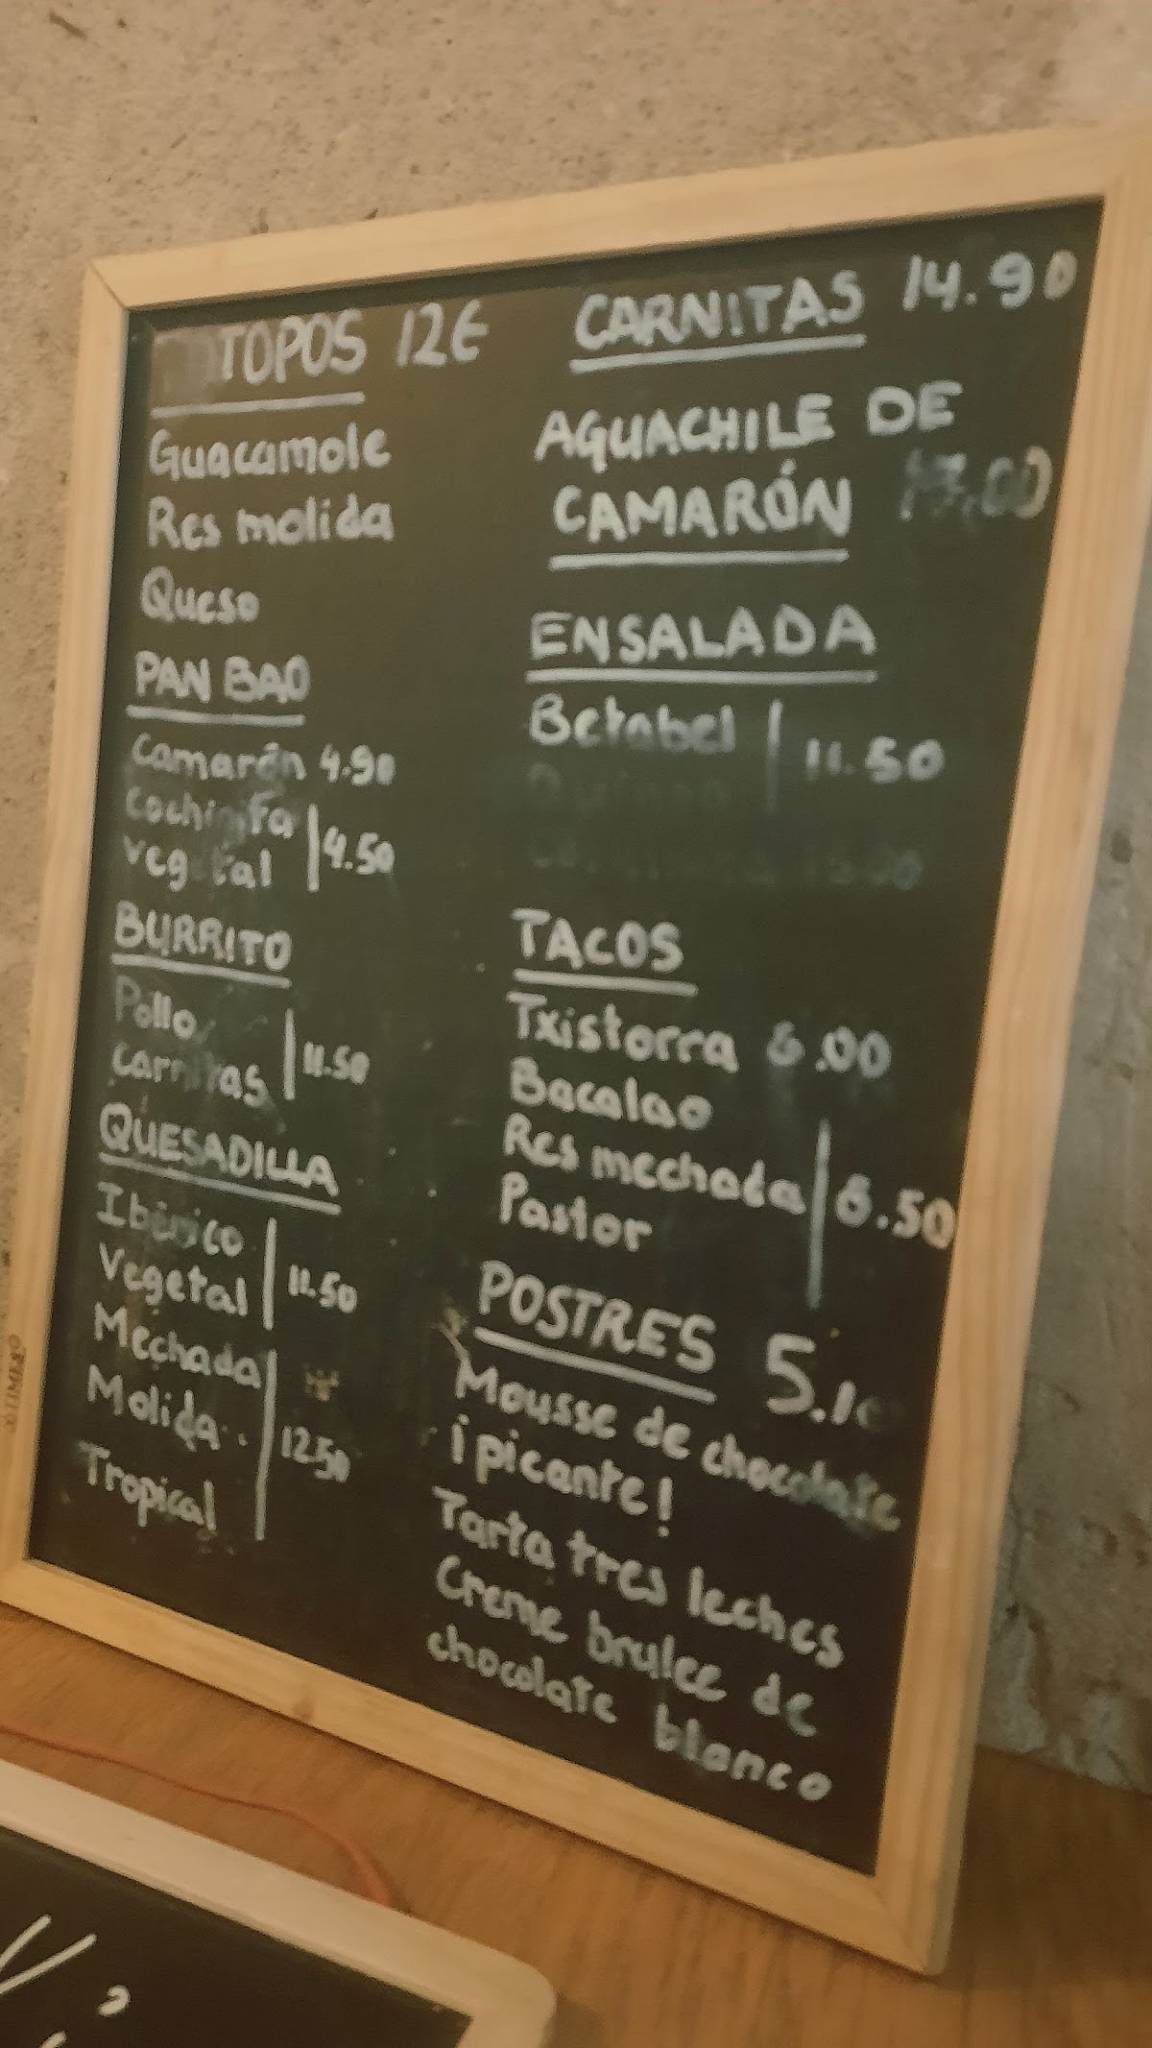 TOPOS 12€
Guacamole
Res molida
Queso
PAN BAO
Camarón 4.90
Cochinita
Vegetal 4.50
BURRITO
Pollo
Carnitas 11.50
QUESADILLA
Ibérico
Vegetal 11.50
Mechada
Molida 12.50
Tropical
CARNITAS 14.90
AGUACHILE DE
CAMARÓN
ENSALADA
Betabel 11.50
TACOS
Txistorra 6.00
Bacalao
Res mechada 6.50
Pastor
POSTRES
Mousse de chocolate
¡picante!
Tarta tres leches
Creme brulee de
chocolate blanco